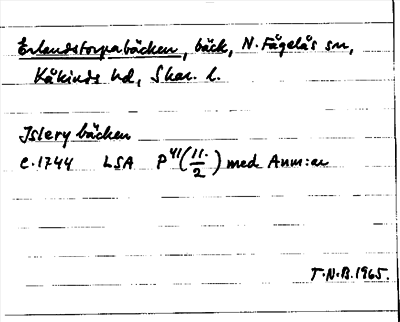 Erlandstorpabäcken, bäck, N. Fågelås sn,
Kåkinds hd, Skar. l.
Islery bäcken
c.1744 LSA P41(11./2) med Anm:ar
T.N.B.1965.